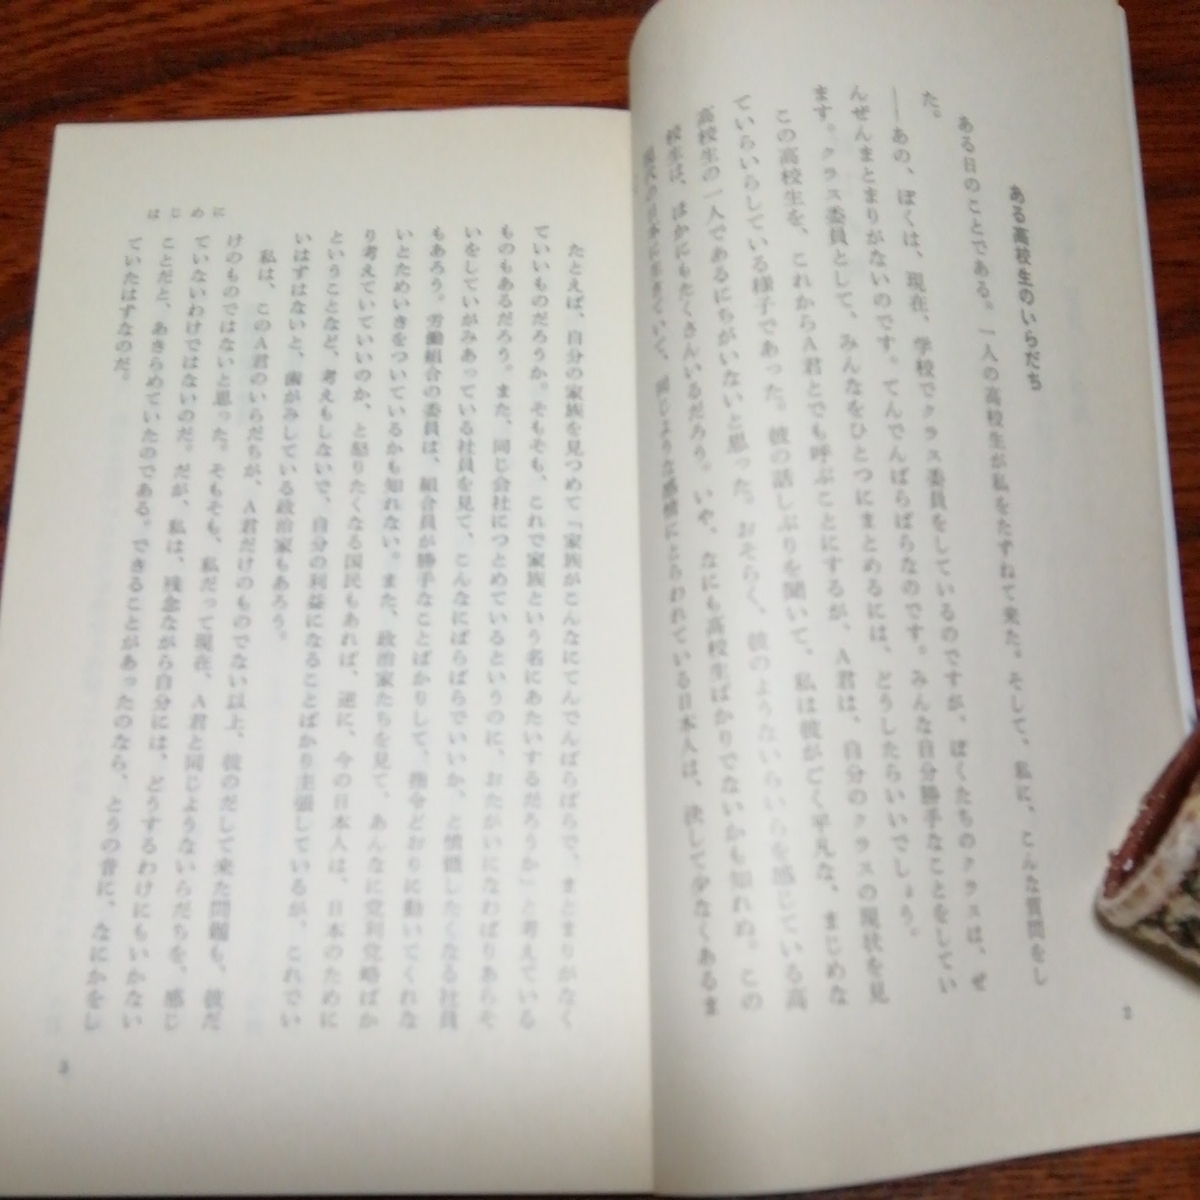 ある高校生のいらだち
ある日のことである。一人の高校生が私をたずねて来た。そして、私に、こんな質問をし
た。
――あの、ぼくは、現在、学校でクラス委員をしているのですが、ぼくたちのクラスは、ぜ
んぜんまとまりがないのです。てんでんばらばらなのです。みんな自分勝手なことをしてい
ます。クラス委員として、みんなをひとつにまとめるには、どうしたらいいでしょう。
この高校生を、これからA君とでも呼ぶことにするが、A君は、自分のクラスの現状を見
ていらいらしている様子であった。彼の話しぶりを聞いて、私は彼がごく平凡な、まじめな
高校生の一人であるにちがいないと思った。おそらく、彼のようないらいらを感じている高
校生は、ほかにもたくさんいるだろう。いや、なにも高校生ばかりでないかも知れぬ。この
現代の日本に生きていて、同じような感情にとらわれている日本人は、決して少なくあるま
2
たとえば、自分の家族を見つめて「家族がこんなにてんでんばらばらで、まとまりがなく
ていいものだろうか。そもそも、これで家族という名にあたいするだろうか」と考えている
ものもあるだろう。また、同じ会社につとめているというのに、おたがいになわばりあらそ
いをしていがみあっている社員を見て、こんなにばらばらでいいか、と憤慨したくなる社員
もあろう。労働組合の委員は、組合員が勝手なことばかりして、指令どおりに動いてくれな
いとためいきをついているかも知れない。また、政治家たちを見て、あんなに党利党略ばか
り考えていていいのか、と怒りたくなる国民もあれば、逆に、今の日本人は、日本のために
ということなど、考えもしないで、自分の利益になることばかり主張しているが、これでい
いはずはないと、歯がみしている政治家もあろう。
私は、このA君のいらだちが、A君だけのものでない以上、彼のだして来た問題も、彼だ
けのものではないと思った。そもそも、私だって現在、A君と同じようないらだちを、感じ
ていないわけではないのだ。だが、私は、残念ながら自分には、どうするわけにもいかない
ことだと、あきらめていたのである。できることがあったのなら、とうの昔に、なにかをし
ていたはずなのだ。
はじめに
3